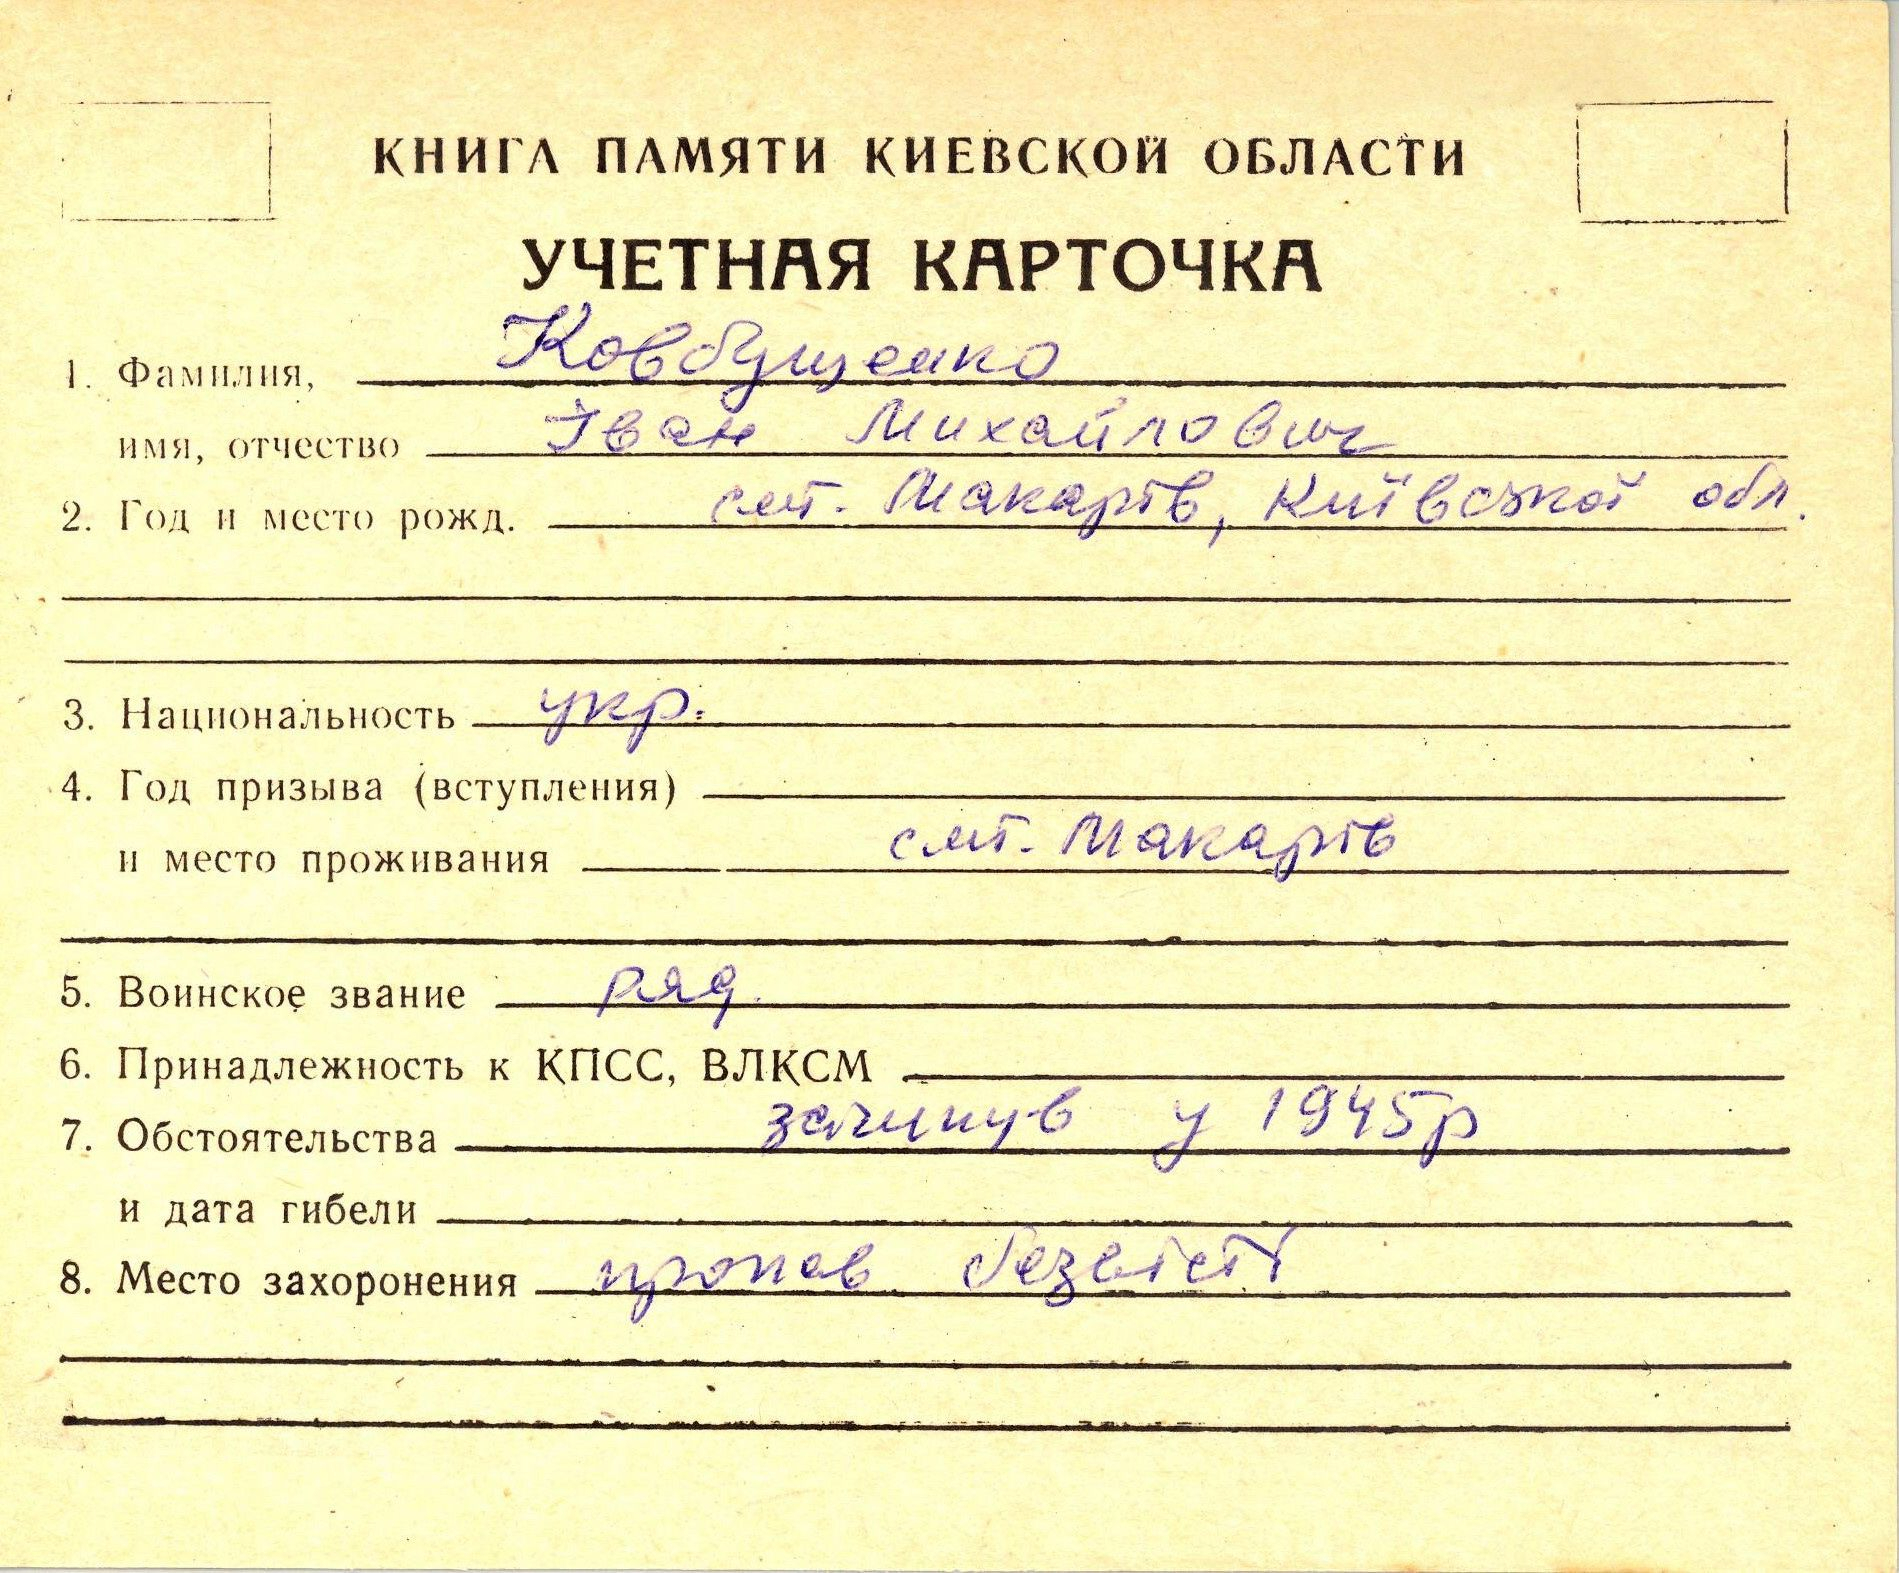 КНИГА ПАМЯТИ КИЕВСКОЙ ОБЛАСТИ
УЧЕТНАЯ КАРТОЧКА
1. Фамилия, Ковбущенко
имя, отчество Іван Михайлович
2. Год и место рожд. смт. Макарів, Київської обл.
3. Национальность укр.
4. Год призыва (вступления)
и место проживания смт. Макарів
5. Воинское звание ряд.
6. Принадлежность к КПСС, ВЛКСМ
7. Обстоятельства загинув у 1945р
и дата гибели
8. Место захоронения пропав безвісті